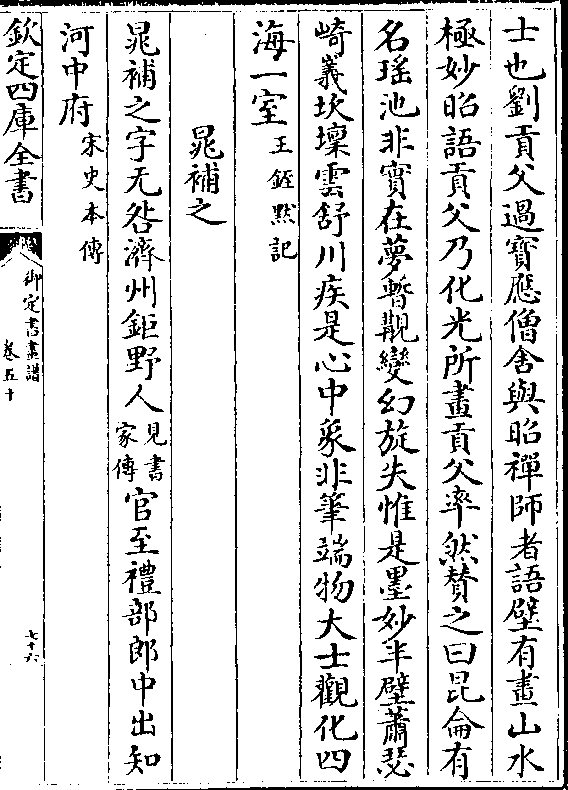 士也劉貢父過寳應僧舍與昭禪師者語壁有畫山水
極妙昭語貢父乃化光所畫貢父率然賛之曰昆侖有
名瑶池非實在夢暫覯變幻旋失惟是墨妙半壁蕭瑟
崎義坎壈雲舒川疾是心中象非筆端物大士觀化四
海一室王銍黙記
晁補之
晁補之字无咎濟州鉅野人見書家傳官至禮部郎中出知
河中府宋史本傳
欽定四庫全書
御定書畫譜
卷五十
七十六